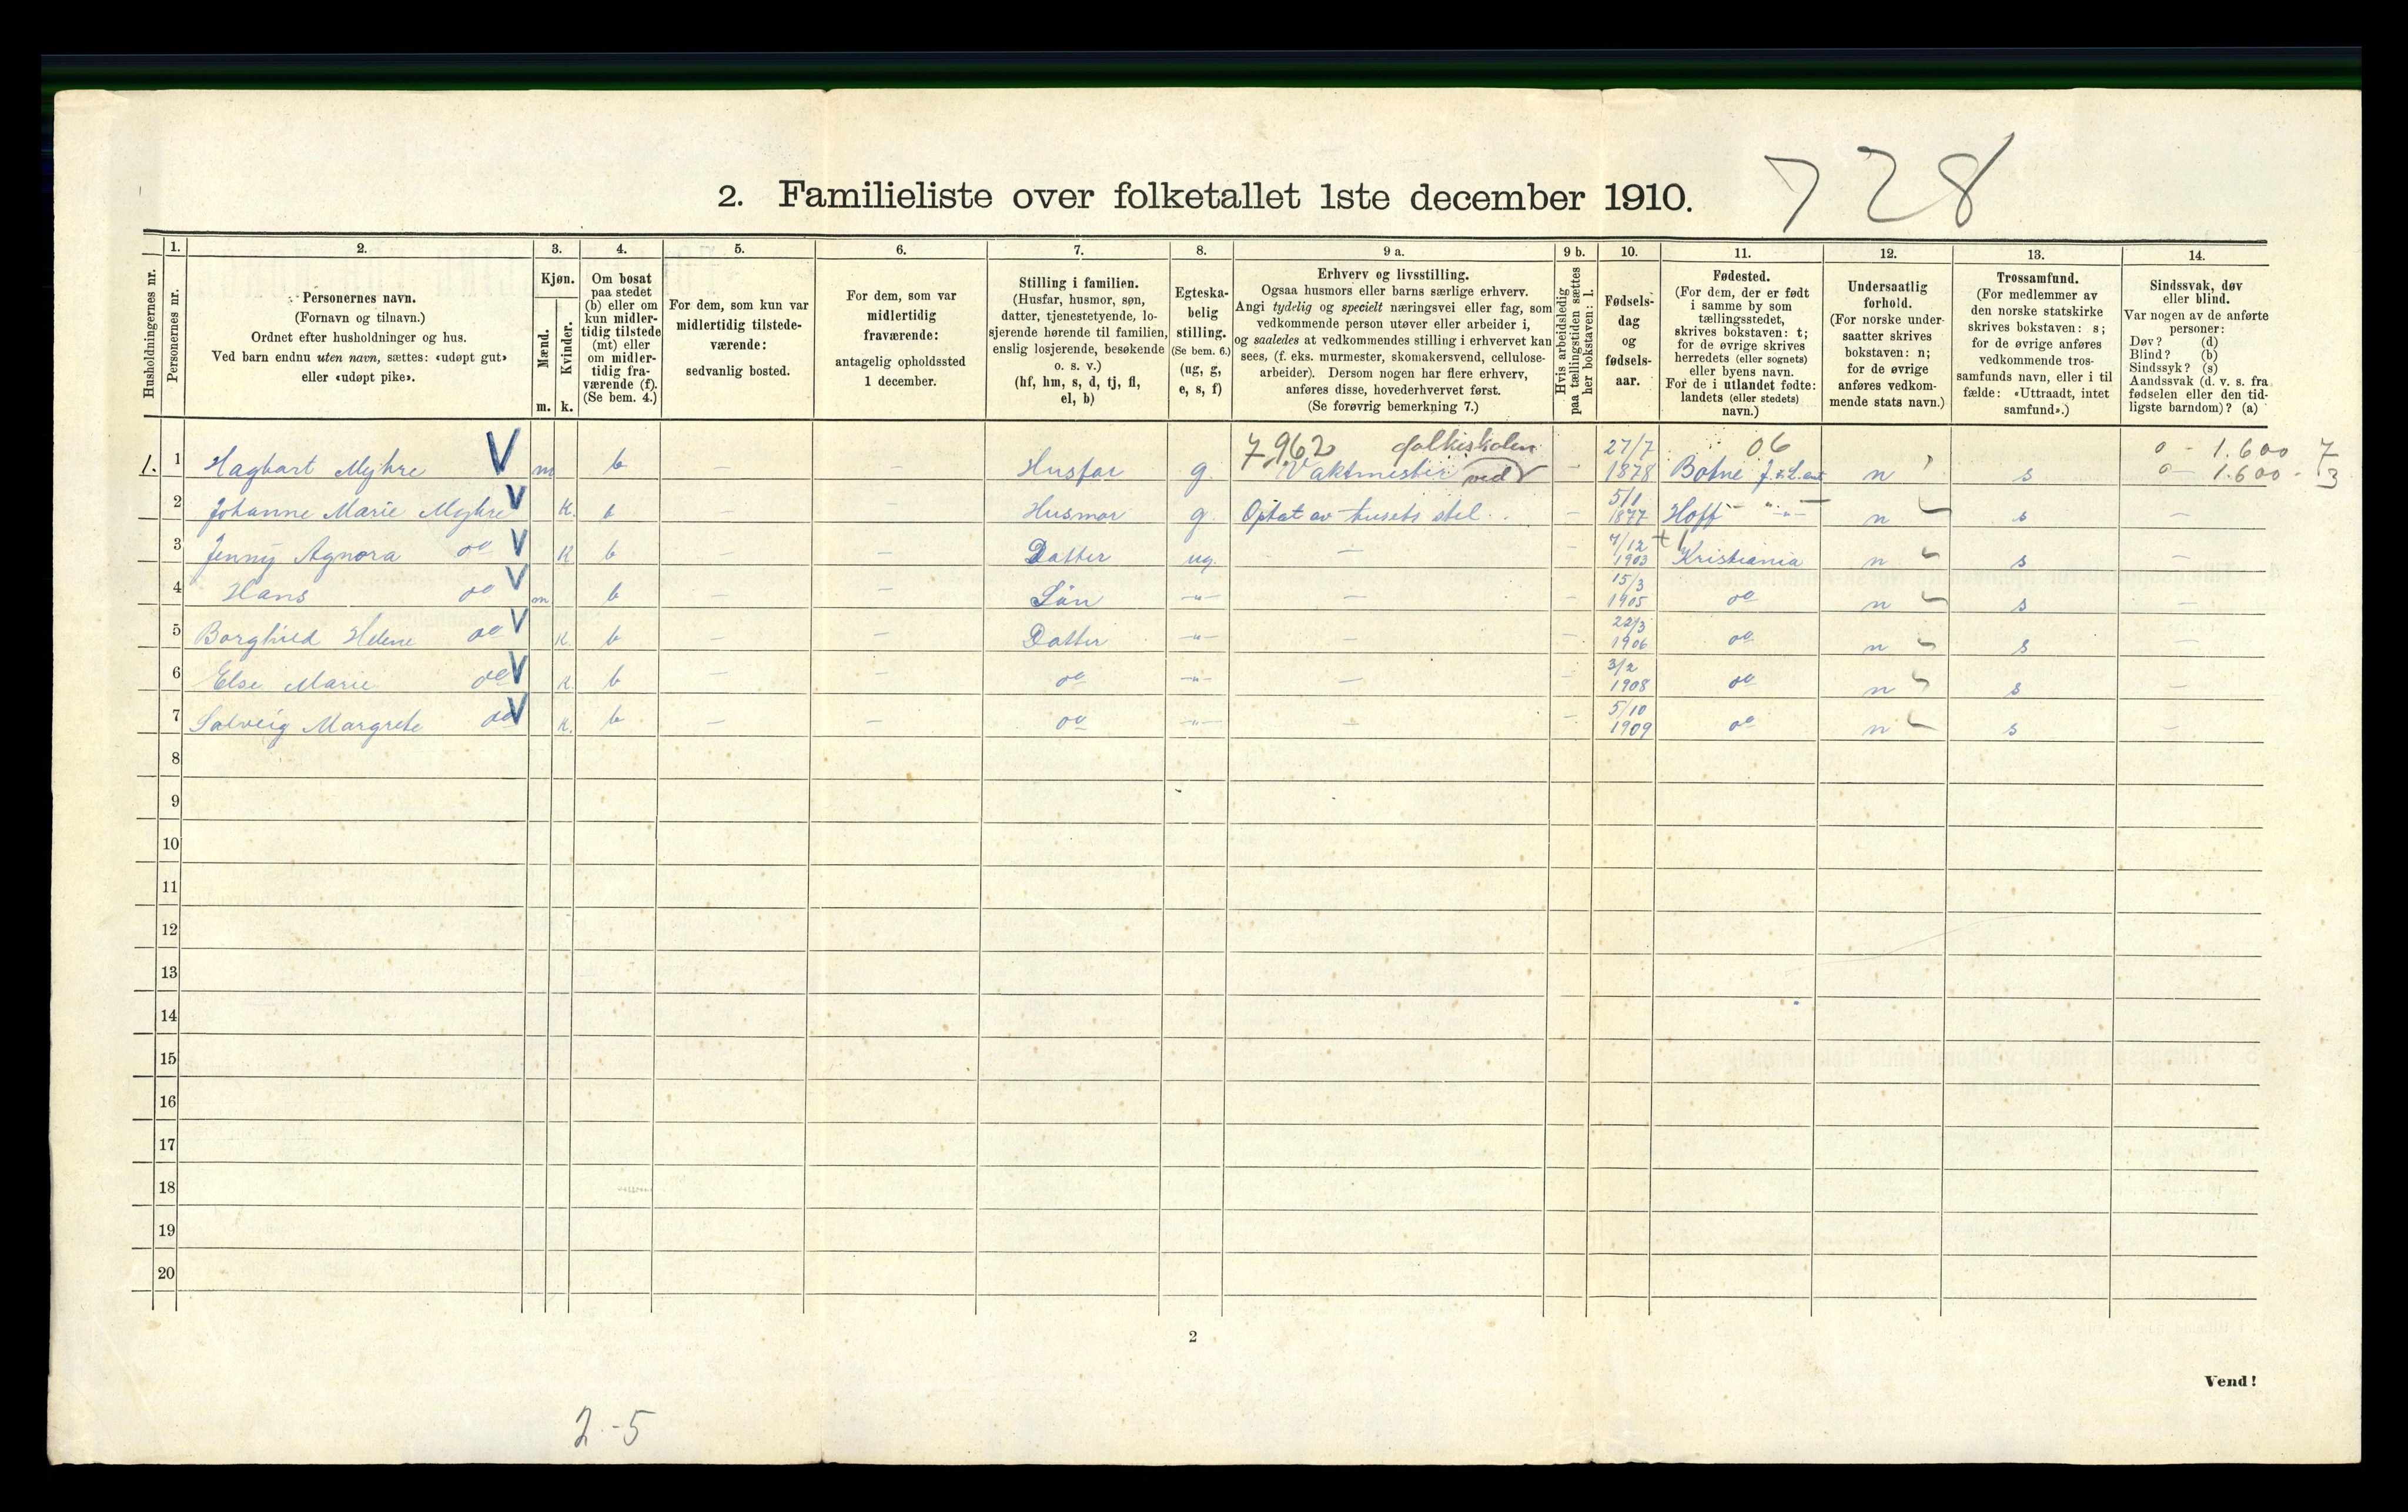 728
2. Familieliste over folketallet 1ste december 1910.
Husholdningernes nr.
1.
Personernes nr.
2.
Personernes navn.
(Fornavn og tilnavn.)
Ordnet efter husholdninger og hus.
Ved barn endnu uten navn, sættes: «udøpt gut»
eller «udøpt pike».
3.
Kjøn.
Mænd.
Kvinder.
m. k.
4.
Om bosat
paa stedet
(b) eller om
kun midler-
tidig tilstede
(mt) eller
om midler-
tidig fra-
værende (f).
(Se bem. 4.)
5.
For dem, som kun var
midlertidig tilstede-
værende:
sedvanlig bosted.
6.
For dem, som var
midlertidig
fraværende:
antagelig opholdssted
1 december.
7.
Stilling i familien.
(Husfar, husmor, søn,
datter, tjenestetyende, lo-
sjerende hørende til familien,
enslig losjerende, besøkende
o. s. v.)
(hf, hm, s, d, tj, fl,
el, b)
8.
Egteska-
belig
stilling.
(Se bem. 6.)
(ug, g,
e, s, f)
9 a.
Erhverv og livsstilling.
Ogsaa husmors eller barns særlige erhverv.
Angi tydelig og specielt næringsvei eller fag, som
vedkommende person utøver eller arbeider i,
og saaledes at vedkommendes stilling i erhvervet kan
sees, (f. eks. murmester, skomakersvend, cellulose-
arbeider). Dersom nogen har flere erhverv,
anføres disse, hovederhvervet først.
(Se forøvrig bemerkning 7.)
9 b.
Hvis arbeidsledig
paa tællingstiden sættes
her bokstaven: l.
10.
Fødsels-
dag
og
fødsels-
aar.
11.
Fødested.
(For dem, der er født
i samme by som
tællingsstedet,
skrives bokstaven: t;
for de øvrige skrives
herredets (eller sognets)
eller byens navn.
For de i utlandet fødte:
landets (eller stedets)
navn.)
12.
Undersaatlig
forhold.
(For norske under-
saatter skrives
bokstaven: n;
for de øvrige
anføres vedkom-
mende stats navn.)
13.
Trossamfund.
(For medlemmer av
den norske statskirke
skrives bokstaven: s;
for de øvrige anføres
vedkommende tros-
samfunds navn, eller i til
fælde: «Uttraadt, intet
samfund».)
14.
Sindssvak, døv
eller blind.
Var nogen av de anførte
personer:
Døv? (d)
Blind? (b)
Sindssyk? (s)
Aandssvak (d. v. s. fra
fødselen eller den tid-
ligste barndom)? (a)
7962 folkeskolen 27/7 06 0 - 1.600 7
1. 1 Hagbart Myhre V m b — — Husfar g. Vaktmester ved — 1878 Botne J. & L. amt n s 0 - 1.600 - 3
2 Johanne Marie Myhre V K. b — — Husmor g. Optat av husets stel — 5/1 1877 Hoff — " — n s —
3 Jenny Agnora do V K b — — Datter ug. — — 7/12 1903 Kristiania n s —
4 Hans do V m b — — Sön —"— — — 15/3 1905 do n s —
5 Borghild Helene do V K. b — — Datter —"— — — 22/3 1906 do n s —
6 Else Marie do V K. b — — do —"— — — 3/2 1908 do n s —
7 Solveig Margrete do V K. b — — do —"— — — 5/10 1909 do n s —
8
9
10
11
12
13
14
15
16
17
18
19
20
2
Vend!
2-5